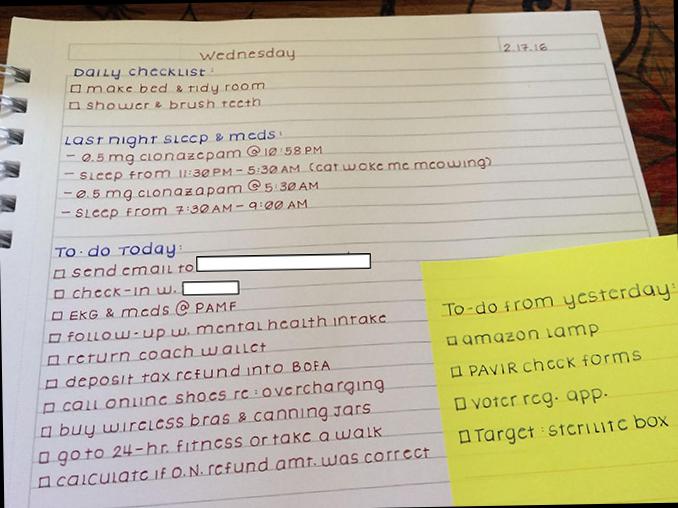 Wednesday
2.17.16
Daily checklist:
□ make bed & tidy room
□ shower & brush teeth
Last night sleep & meds:
- 0.5 mg clonazepam @ 10:58 PM
- sleep from 11:30 PM - 5:30 AM (cat woke me meowing)
- 0.5 mg clonazapam @ 5:30 AM
- sleep from 7:30 AM - 9:00 AM
To-do Today:
□ send email to
□ check-in w.
□ EKG & meds @ PAMF
□ follow-up w. mental health intake
□ return coach wallet
□ deposit tax refund into BOFA
□ call online shoes re: overcharging
□ buy wireless bras & canning jars
□ go to 24-hr. fitness or take a walk
□ calculate if O.N. refund amt. was correct
To-do from yesterday:
□ amazon lamp
□ PAVIR check forms
□ voter reg. app.
□ Target: sterilite box